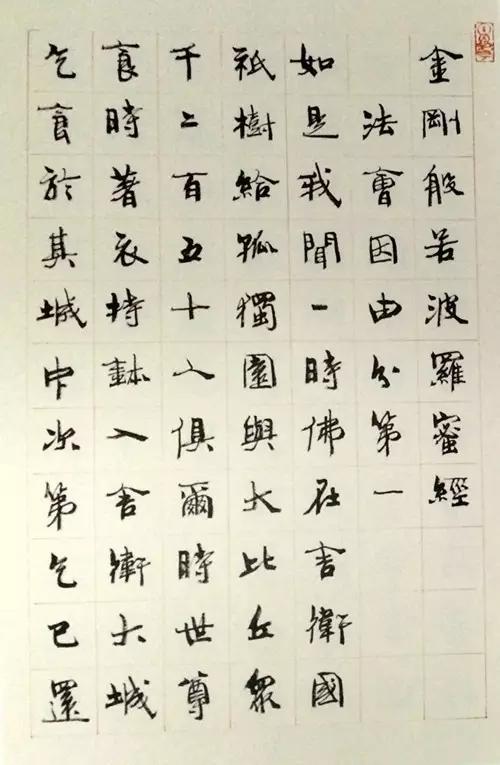 金剛般若波羅蜜經
法會因由分第一
如是我聞一時佛在舍衛國
祇樹給孤獨園與大比丘眾
千二百五十人俱爾時世尊
食時著衣持鉢入舍衛大城
乞食於其城中次第乞已還